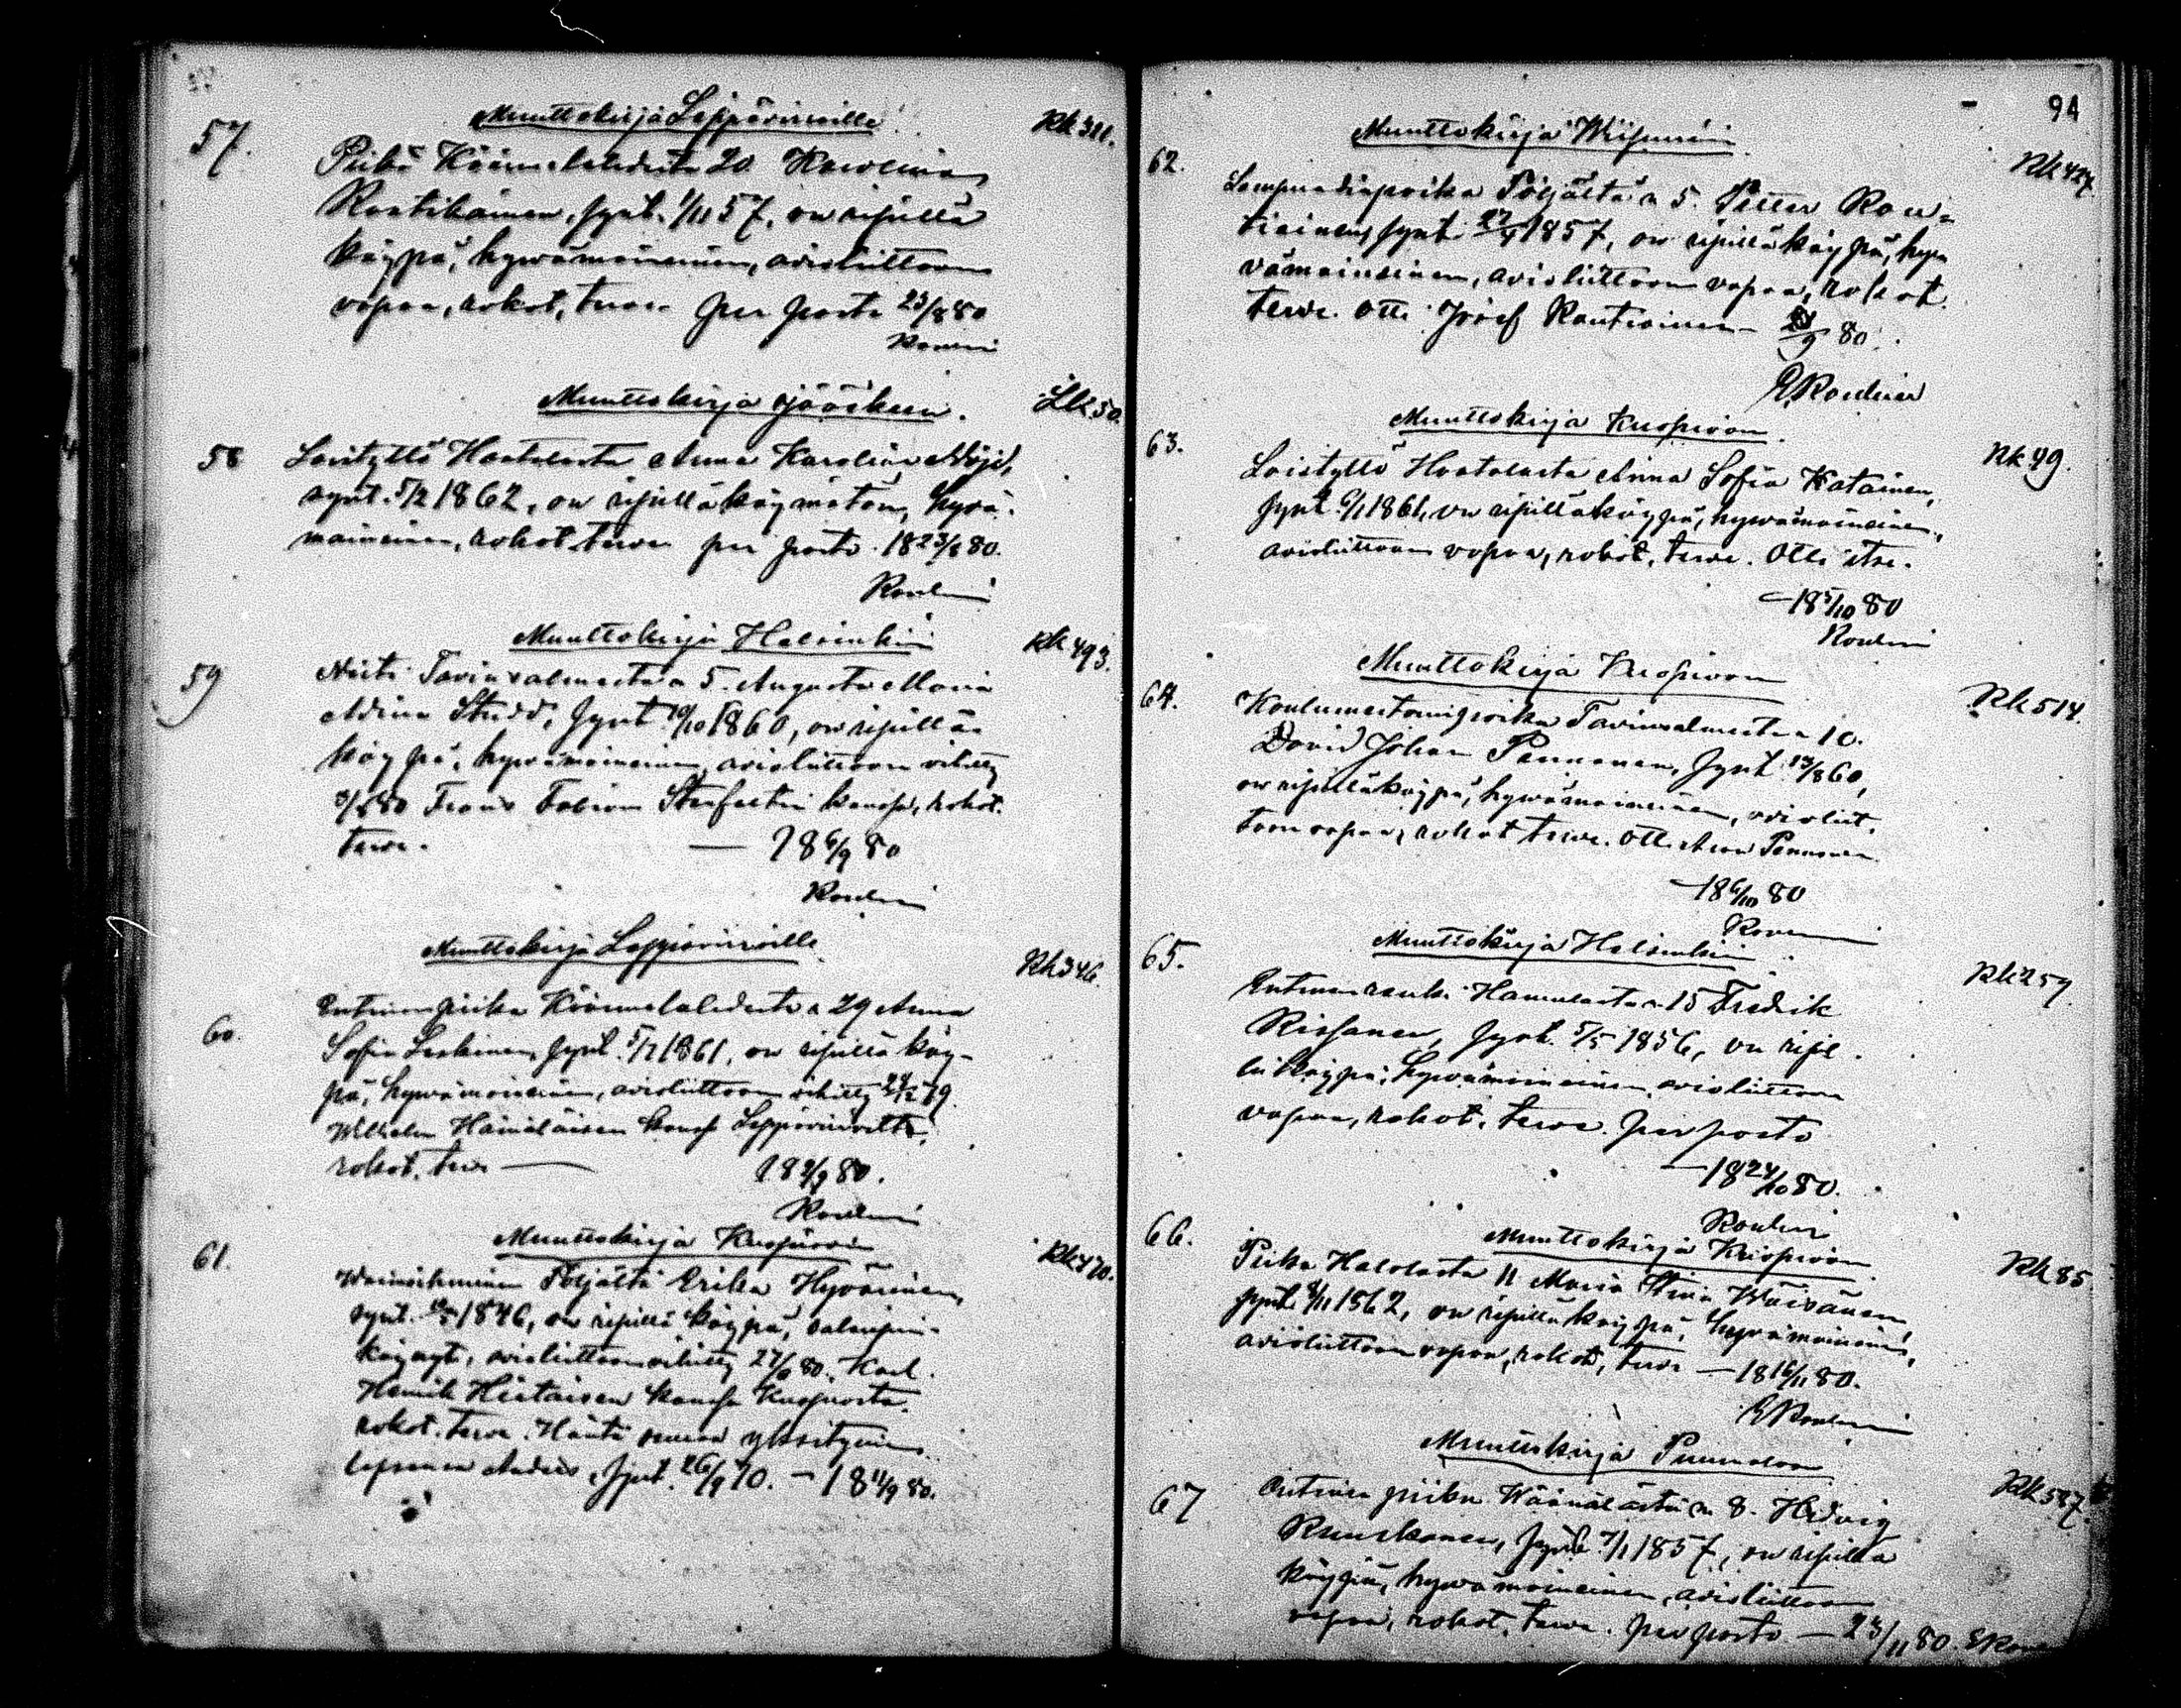 Muuttokirja Leppävirroille
Rk 321.
57.
Piika Käärmelahdesta 20. Karolina
Rautikainen, synt. 1/11 57, on ripillä
käypä, hywämaineinen, avioliittoon
vapaa, rokot, terve. per posto 23/8 80
Muuttokirja Jääskeen.
Lk 50.
58 Loistyttö Haatalasta Anna Karolina
synt. 5/2 1862, on ripillä käymätön, hyvä-
maineinen, rokot. terve per posto. 18 23/8 80.
Muuttokirja Helsinkiin
Rk 493.
59 Neiti Tavinsalmesta n 5. Augusta Maria
Adina Studd, synt. 10/10 1860, on ripillä
käypä, hywämaineinen, avioliittoon vihitty
3/8 80 Frans Fabian kanssa, rokot.
terve. — 18 6/9 80
Muuttokirja Leppävirroille
Rk 346.
60. Entinen piika Käärmelahdesta n 29 Anna
Sofia Leskinen, synt. 5/7 1861, on ripillä käy-
pä, hywämaineinen, avioliittoon vihitty 28/12 79.
Wilhelm Hämäläisen kanssa Leppävirroilta,
rokot. terve — 18 9/9 80.
Muuttokirja Kuopioon
Rk 470.
61. Töljältä Erika Hyvärinen,
synt. 1846, on ripillä käypä,
käynyt, avioliittoon vihitty 27/6 80. Karl
Henrik Hiltaisen kanssa Kuopiosta.
rokot. terve. Häntä seuraa yksityinen
lapsensa Anders, synt. 26/9 70. — 18 11/9 80.
94
Muuttokirja Wiipuriin
Rk 427.
62. Lampuodinpoika Töljältä n 5. Petter Rau-
tiainen, synt. 27/4 1857, on ripillä käypä, hyw
vämaineinen, avioliittoon vapaa, rokot.
terve. Otti Josef Rautiainen — /9 80.
Muuttokirja Kuopioon
Rk 49.
63. Loistyttö Haatalasta Anna Sofia Katainen,
synt. 6/1 1861, on ripillä käypä, hywämaineinen,
avioliittoon vapaa, rokot, terve. Otti itse.
— 18 5/10 80
Muuttokirja Kuopioon
Rk 514.
64. Koulumestarinpoika Tavinsalmesta n 10.
David Johan Pennanen, synt. 13/8 60,
on ripillä käypä, hywämaineinen, avioliit-
toon vapaa, rokot terve. Otti Pennanen.
— 18 6/10 80
Muuttokirja Helsinkiin
Rk 257.
65. Entinen renki Hamulasta n 15 Fredrik
Rissanen, synt. 5/5 1856, on ripil-
lä käypä, hywämaineinen, avioliittoon
vapaa, rokot. terve. per posto
— 18 24/10 80.
Muuttokirja Kuopioon
Rk 85
66. Piika Halolasta 11 Maria Stina Wäisänen,
synt. 8/11 1862, on ripillä käypä, hywämaineinen,
avioliittoon vapaa, rokot, terve — 18 16/11 80.
Muuttokirja Puumalaan
Rk 587.
67 Entinen piika Wäänälästä n 8. Hedvig
Ruuskanen, synt. 7/1 1857, on ripillä
käypä, hywämaineinen, avioliittoon
vapaa, rokot. terve. per posto — 23/11 80.